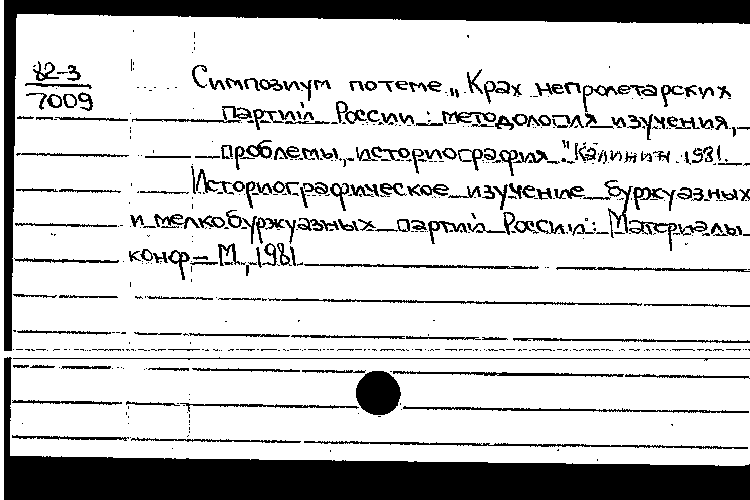 82-3
7009
Симпозиум по теме „Крах непролетарских
партий России: методология изучения,
проблемы, историография." Калинин. 1981.
Историографическое изучение буржуазных
и мелкобуржуазных партий России: Материалы
конф.– М., 1981